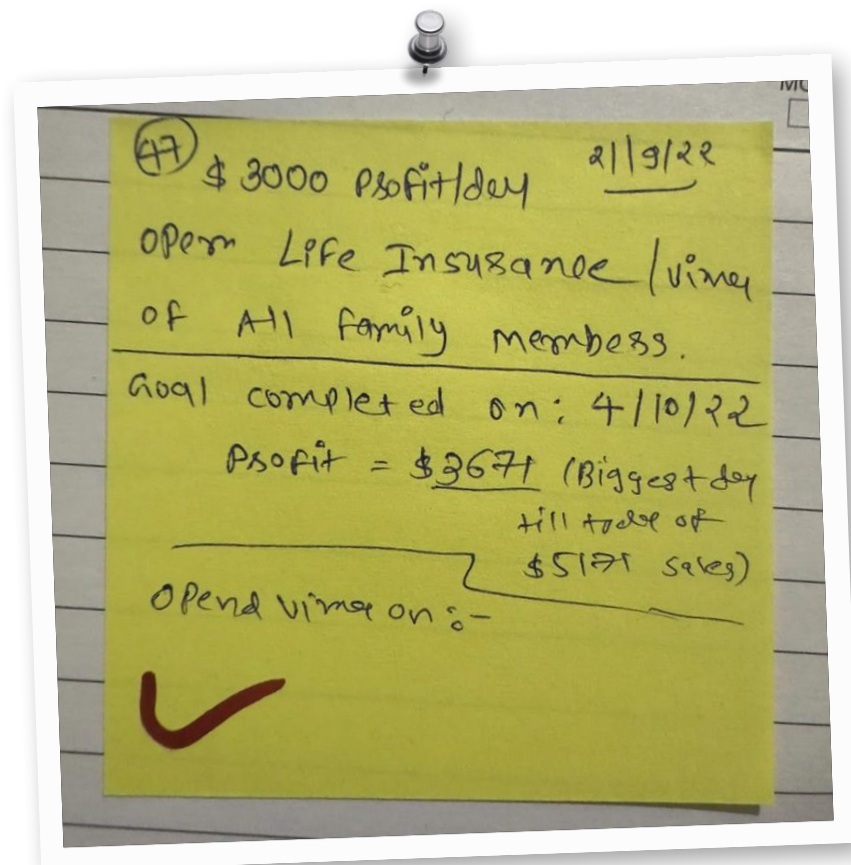 47 $3000 Profit/day 21/9/22
Open Life Insurance/vima
of All family members.
Goal completed on: 4/10/22
Profit = $3671 (Biggest day
till today of
$5171 sales)
Opend vima on :-
MO